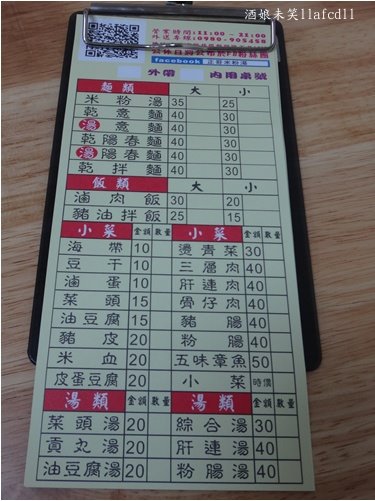 酒娘未笑llafcdll
營業時間:11:00 - 21:00
外送專線:0980-905458
公休日將公布於FB粉絲團
facebook 正昔米粉湯
外帶 內用桌號
麵類 大 小
米粉湯 35 25
乾意麵 40 30
湯意麵 40 30
乾陽春麵 40 30
湯陽春麵 40 30
乾拌麵 40 30
飯類 大 小
滷肉飯 30 20
豬油拌飯 25 15
小菜 金額 數量 小菜 金額 數量
海帶 10 燙青菜 30
豆干 10 三層肉 40
滷蛋 10 肝連肉 40
菜頭 15 骨仔肉 40
油豆腐 15 豬腸 40
豬皮 20 粉腸 40
米血 20 五味章魚 50
皮蛋豆腐 20 小菜 時價
湯類 金額 數量 湯類 金額 數量
菜頭湯 20 綜合湯 30
貢丸湯 20 肝連湯 40
油豆腐湯 20 粉腸湯 40